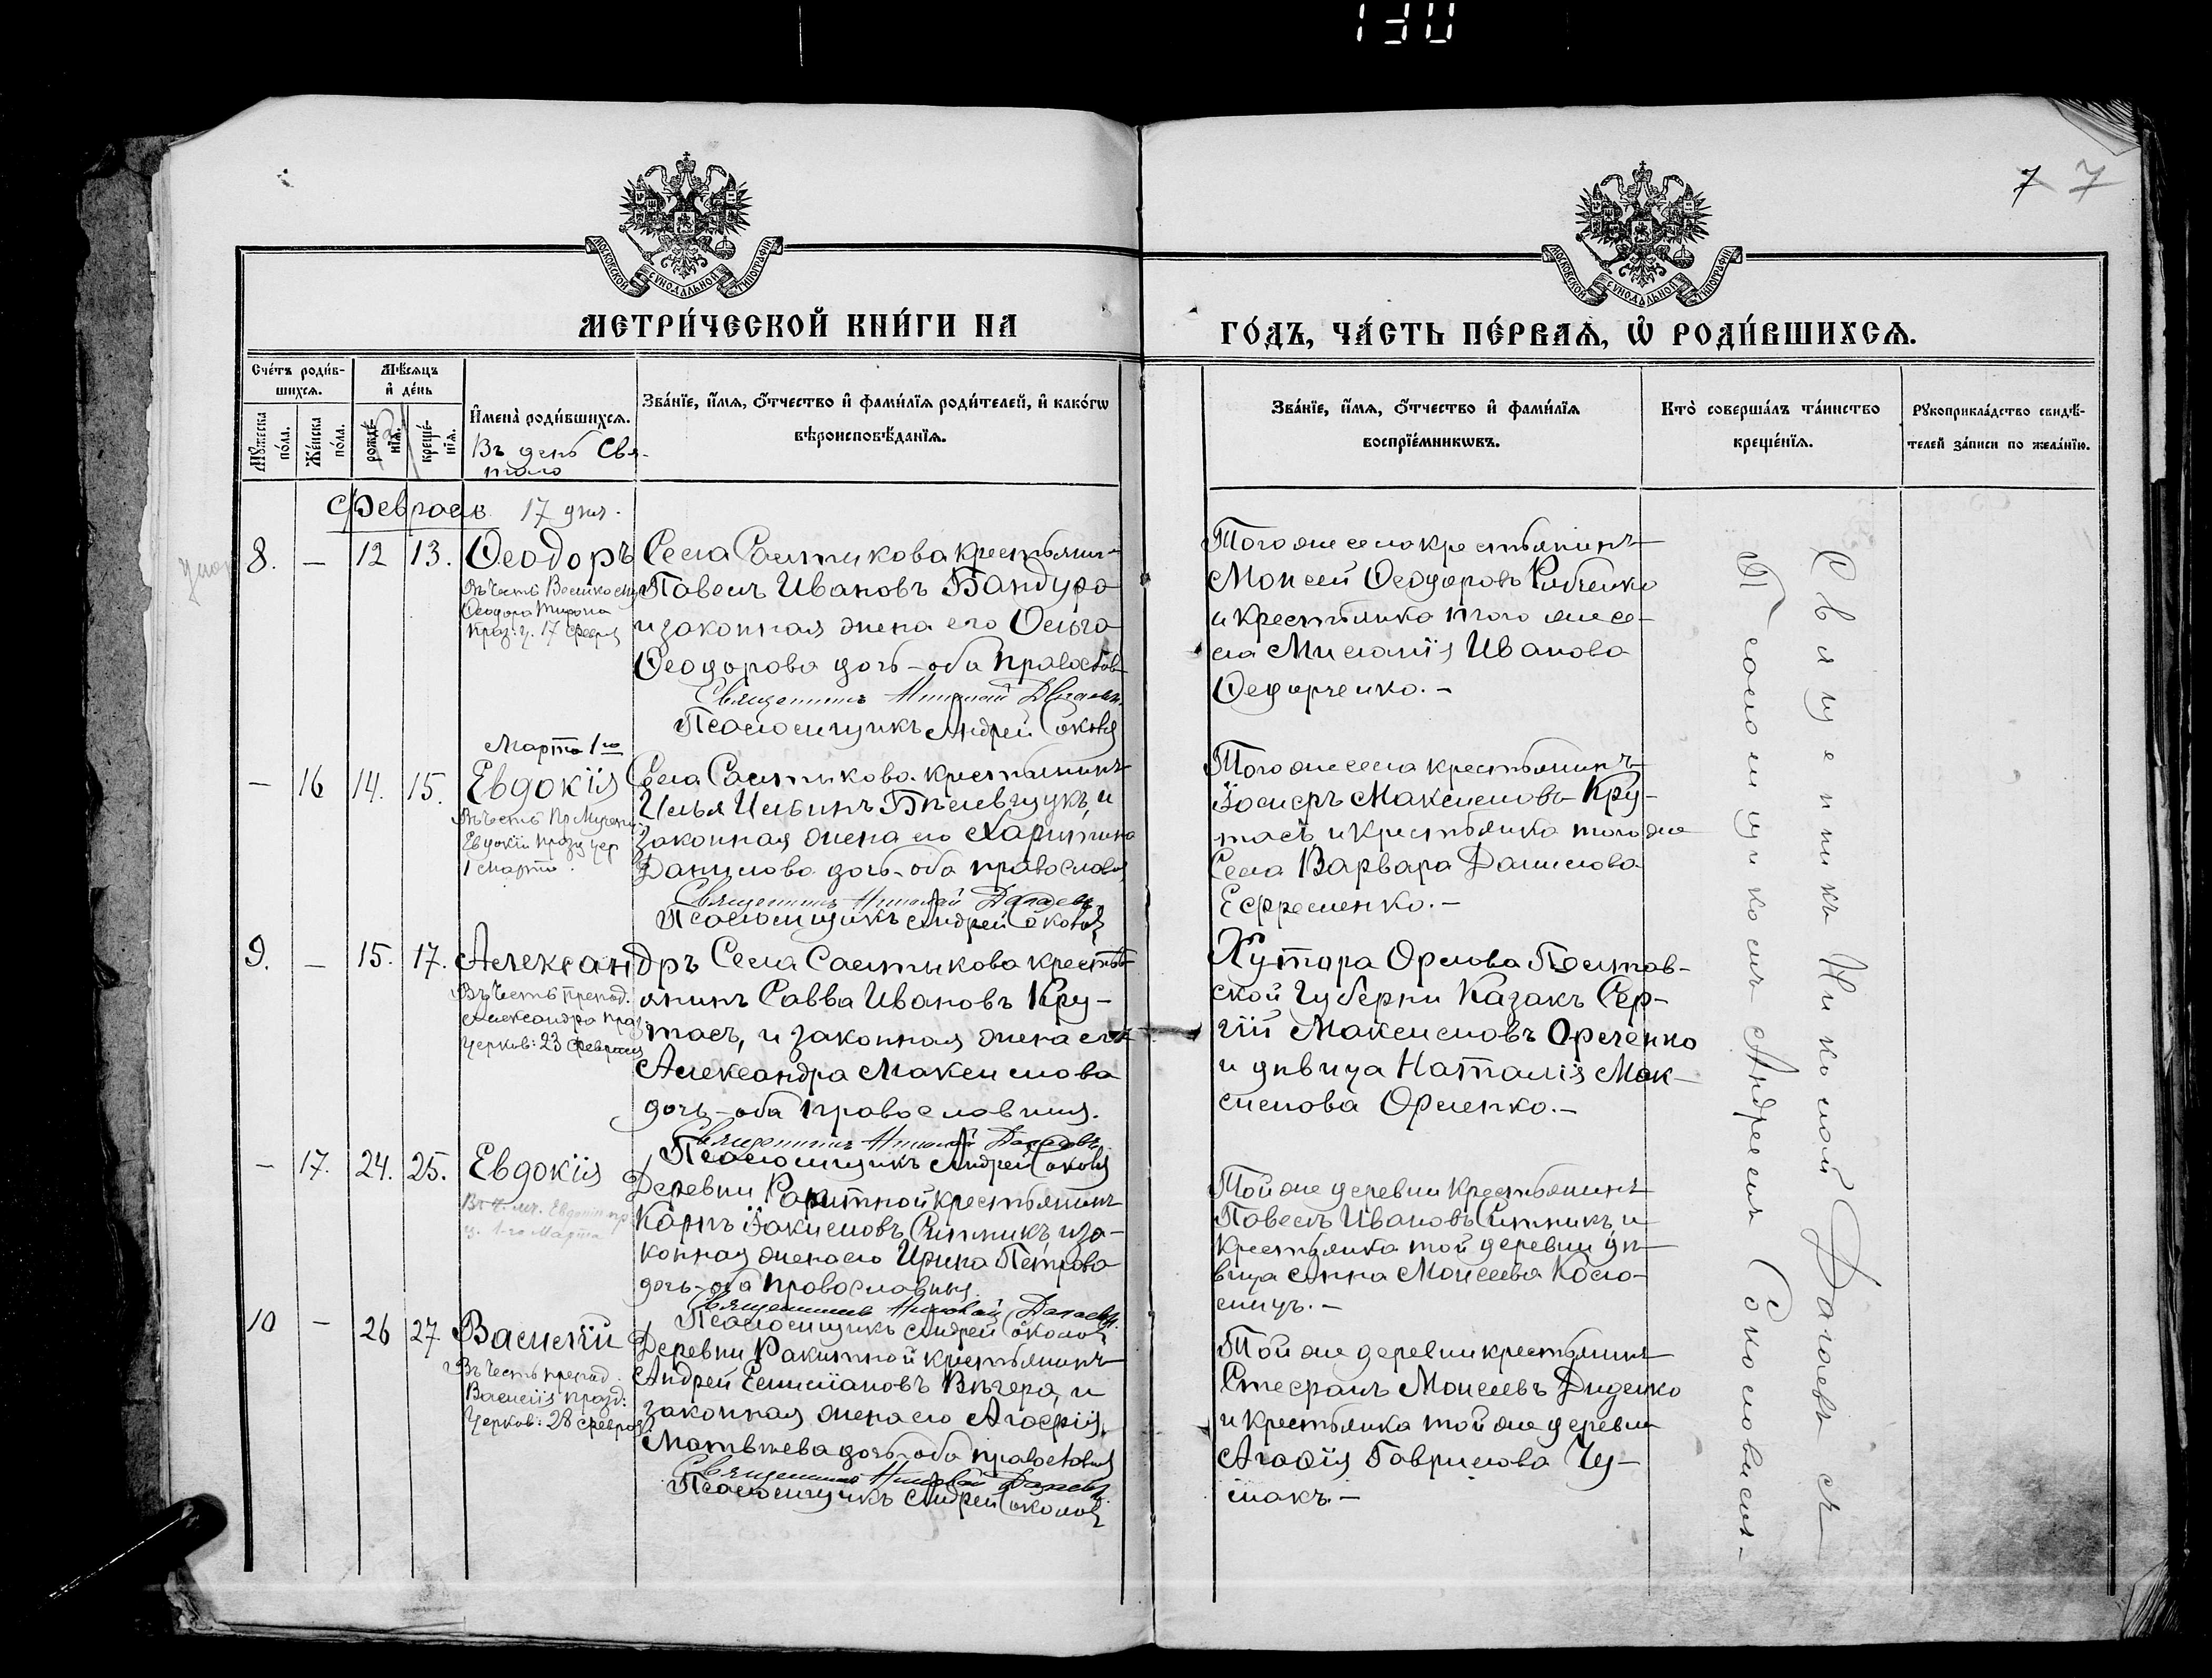 130
7 7
МОСКОВСКОЙ СУНОДАЛЬНОЙ ТИПОГРАФІИ
МОСКОВСКОЙ СУНОДАЛЬНОЙ ТИПОГРАФІИ
МЕТРИ́ЧЕСКОЙ КНИ́ГИ НА
ГО́ДЪ, ЧА́СТЬ ПЕ́РВАѦ, Ѡ҆ РОДИ́ВШИХСѦ.
Сче́тъ роди́в-
шихсѧ.
Мѣ́сѧцъ
и҆ де́нь
Мꙋ́жеска
по́ла.
Же́нска
по́ла.
рожде́-
нїѧ.
креще́-
нїѧ.
И҆мена̀ роди́вшихсѧ.
Въ день Свя-
таго
Зва́нїе, и҆́мѧ, ѻ҆́тчество и҆ фами́лїѧ роди́телей, и҆ како́гѡ
вѣроисповѣ́данїѧ.
Зва́нїе, и҆́мѧ, ѻ҆́тчество и҆ фами́лїѧ
воспрїе́мникѡвъ.
Кто̀ соверша́лъ та́инство
креще́нїѧ.
Рꙋкоприкла́дство свидѣ́-
телей за́писи по жела́нїю.
Февраль 17 дня.
8. — 12 13. Ѳеодоръ
Въ честь Велико му
Ѳеодора Тирона
праз: ц. 17 февр
Села Салтыкова крестьянин
Павелъ Ивановъ Бандура
и законная жена его Ольга
Ѳеодорова дочь – оба православ
Священникъ Николай
Псаломщикъ Андрей Соколов
Тогоже села крестьянинъ
Моисей Ѳеодоровъ Рябченко
и крестьянка того же се-
ла Миланія Иванова
Ѳедорченко. –
Марта 1го
— 16 14. 15. Евдокія
Въ честь Пр. Мучени
Евдокіи празд цер
1 марта.
Села Салтыкова крестьянинъ
Илья Ильинъ Бѣлевщукъ, и
законная жена его Харитина
Данилова дочь – оба православн
Священникъ Николай Дагаевъ
Псаломщикъ Андрей Соколов
Тогоже села крестьянинъ
Іосифъ Максимовъ Кру-
тась и крестьянка того же
Села Варвара Данилова
Ефременко. –
9. — 15. 17. Александръ
Въ честь препод.
Александра праз
церков: 23 февраля
Села Салтыкова кресть-
янинъ Савва Ивановъ Кру-
тась, и законная жена его
Александра Максимова
дочь – оба православныя.
Священникъ Николай Дагаевъ
Псаломщикъ Андрей Соколов
Хутора Орлова Полтав-
ской Губерни Казакъ Сер-
гій Максимовъ
и дѣвица Наталія Мак-
симова
— 17. 24. 25. Евдокія
Въ ч. мч. Евдокіи пр
ц. 1-го Марта
Деревни Ракитной крестьянинъ
Карпъ Іоакимовъ Ситникъ, и за-
конная жена его Ирина Петрова
дочь – оба православныя.
Священникъ Николай Дагаевъ
Псаломщикъ Андрей Соколов
Той же деревни крестьянинъ
Павелъ Ивановъ Ситникъ, и
крестьянка той деревни дѣ-
вица Анна Моисеева Коло-
мицъ. –
10 — 26 27 Василій
Въ честь препод.
Василія празд:
церков: 28 феврал
Деревни Ракитной крестьянинъ
Андрей Емиліановъ Вечера, и
законная жена его Агафія
Матвѣева дочь оба православныя
Священникъ Николай Дагаевъ
Псаломщикъ Андрей Соколов
Той же деревни крестьянинъ
Стефанъ Моисеевъ Диденко
и крестьянка той же деревни
Агафія Гаврилова Чу-
макъ. –
Священникъ Николай Дагаевъ съ
Псаломщикомъ Андреемъ Соколовымъ –